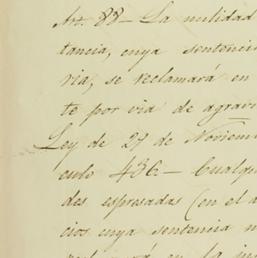 Art. 88 — La nulidad
tancia, cuya sentenci
ria, se reclamará en
te por via de agravi
Ley de 27 de Noviem
culo 436 — Cualqu
des espresadas (en el a
cios cuya sentencia n